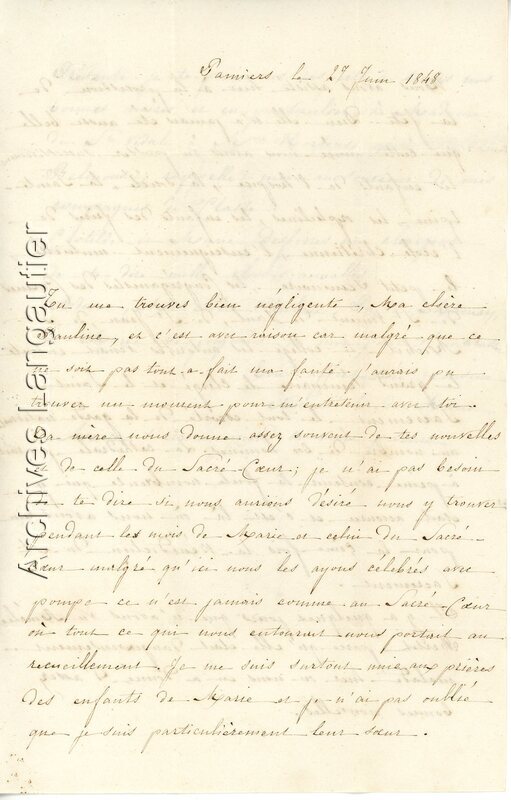 Pamiers le 27 Juin 1848
Tu me trouves bien négligente, Ma chère
Pauline, et c'est avec raison car malgré que ce
ne soit pas tout a fait ma faute j'aurais pu
trouver un moment pour m'entretenir avec toi.
Ta mère nous donne assez souvent de tes nouvelles
et de celle du Sacré Cœur; je n'ai pas besoin
de te dire si nous aurions désiré nous y trouver
pendant les mois de Marie et celui du Sacré-
Cœur malgré qu'ici nous les ayons célébrés avec
pompe ce n'est jamais comme au Sacré Cœur
où tout ce qui nous entourait nous portait au
recueillement. Je me suis surtout unie aux prières
des enfants de Marie et je n'ai pas oublié
que je suis particulièrement leur sœur.
Archives Langautier